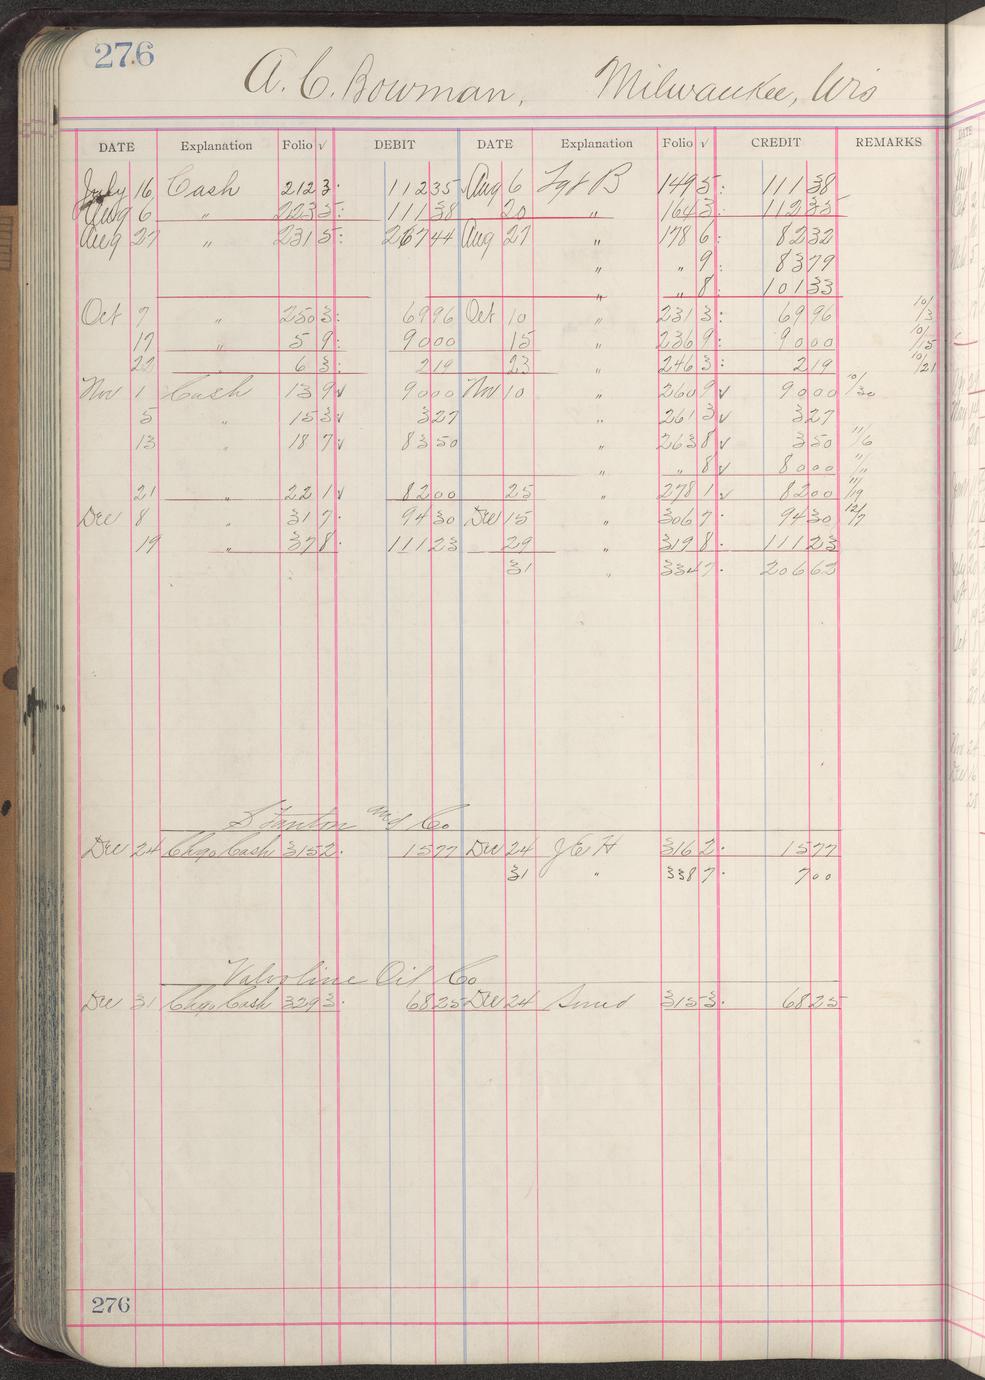 276
A. C. Bowman, Milwaukee, Wis
DATE Explanation Folio √ DEBIT DATE Explanation Folio √ CREDIT REMARKS
July 16 Cash 212 3 112 35 Aug 6 149 5 111 38
Aug 6 " 223 5 111 38 20 " 164 3 112 35
Aug 27 " 231 5 267 44 Aug 27 " 178 6 82 32
" " 9 83 79
" " 8 101 33
Oct 7 " 250 3 69 96 Oct 10 " 231 3 69 96 10/13
17 " 5 9 90 00 15 " 236 9 90 00 10/15
22 " 6 3 2 19 23 " 246 3 2 19 10/21
Nov 1 Cash 13 9 √ 90 00 Nov 10 " 260 9 √ 90 00 10/30
5 " 15 3 √ 3 27 " 261 3 √ 3 27
13 " 18 7 √ 83 50 " 263 8 √ 3 50 11/6
" " 8 √ 80 00 11/11
21 " 22 1 √ 82 00 25 " 278 1 √ 82 00 11/19
Dec 8 " 31 7 94 30 Dec 15 " 306 7 94 30 12/7
19 " 37 8 111 23 29 " 319 8 111 23
31 " 334 7 206 62
and Co
Dec 24 Chgo Cash 315 2 15 77 Dec 24 J E H 316 2 15 77
31 " 338 7 7 00
Valvoline Oil Co
Dec 31 Chgo Cash 329 3 68 25 Dec 24 315 3 68 25
276